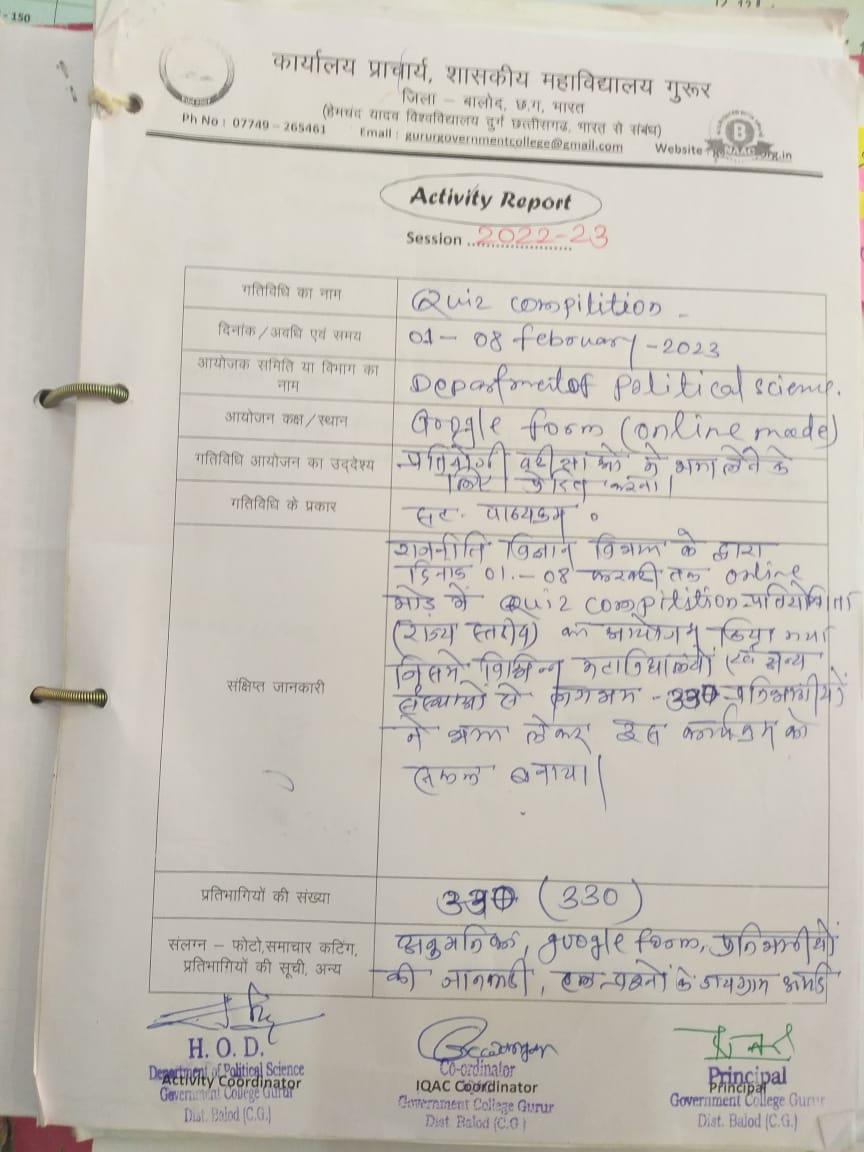 - 150
कार्यालय प्राचार्य, शासकीय महाविद्यालय गुरूर
जिला – बालोद, छ.ग. भारत
(हेमचंद यादव विश्वविद्यालय दुर्ग छत्तीसगढ, भारत से संबंध)
Ph No : 07749 - 265461 Email : gururgovernmentcollege@gmail.com Website
B
NAAC
Activity Report
Session ..2022-23
गतिविधि का नाम Quiz compitition -
दिनांक/अवधि एवं समय 01 - 08 february - 2023
आयोजक समिति या विभाग का
नाम Department of Political science.
आयोजन कक्ष/स्थान Google form (online mode)
गतिविधि आयोजन का उद्देश्य प्रतियोगी परीक्षाओं में भाग लेने के
लिए प्रेरित करना।
गतिविधि के प्रकार सह. पाठ्यक्रम .
राजनीति विज्ञान विभाग के द्वारा
दिनांक 01.-08 फरवरी तक online
मोड में Quiz compitition प्रतियोगिता
(राज्य स्तरीय) का आयोजन किया गया
जिसमें विभिन्न महाविद्यालयों एवं अन्य
संक्षिप्त जानकारी
संस्थाओं से लगभग - 330 प्रतिभागीयों
ने भाग लेकर इस कार्यक्रम को
सफल बनाया।
प्रतिभागियों की संख्या 330 (330)
संलग्न – फोटो,समाचार कटिंग,
प्रतिभागियों की सूची, अन्य
google form, प्रतिभागीयों
की जानकारी,
H. O. D.
Department of Political Science
Activity Coordinator
Government College Gurur
Dist. Balod (C.G.)
Co-ordinator
IQAC Coordinator
Government College Gurur
Dist. Balod (C.G)
Principal
Principal
Government College Gurur
Dist. Balod (C.G.)